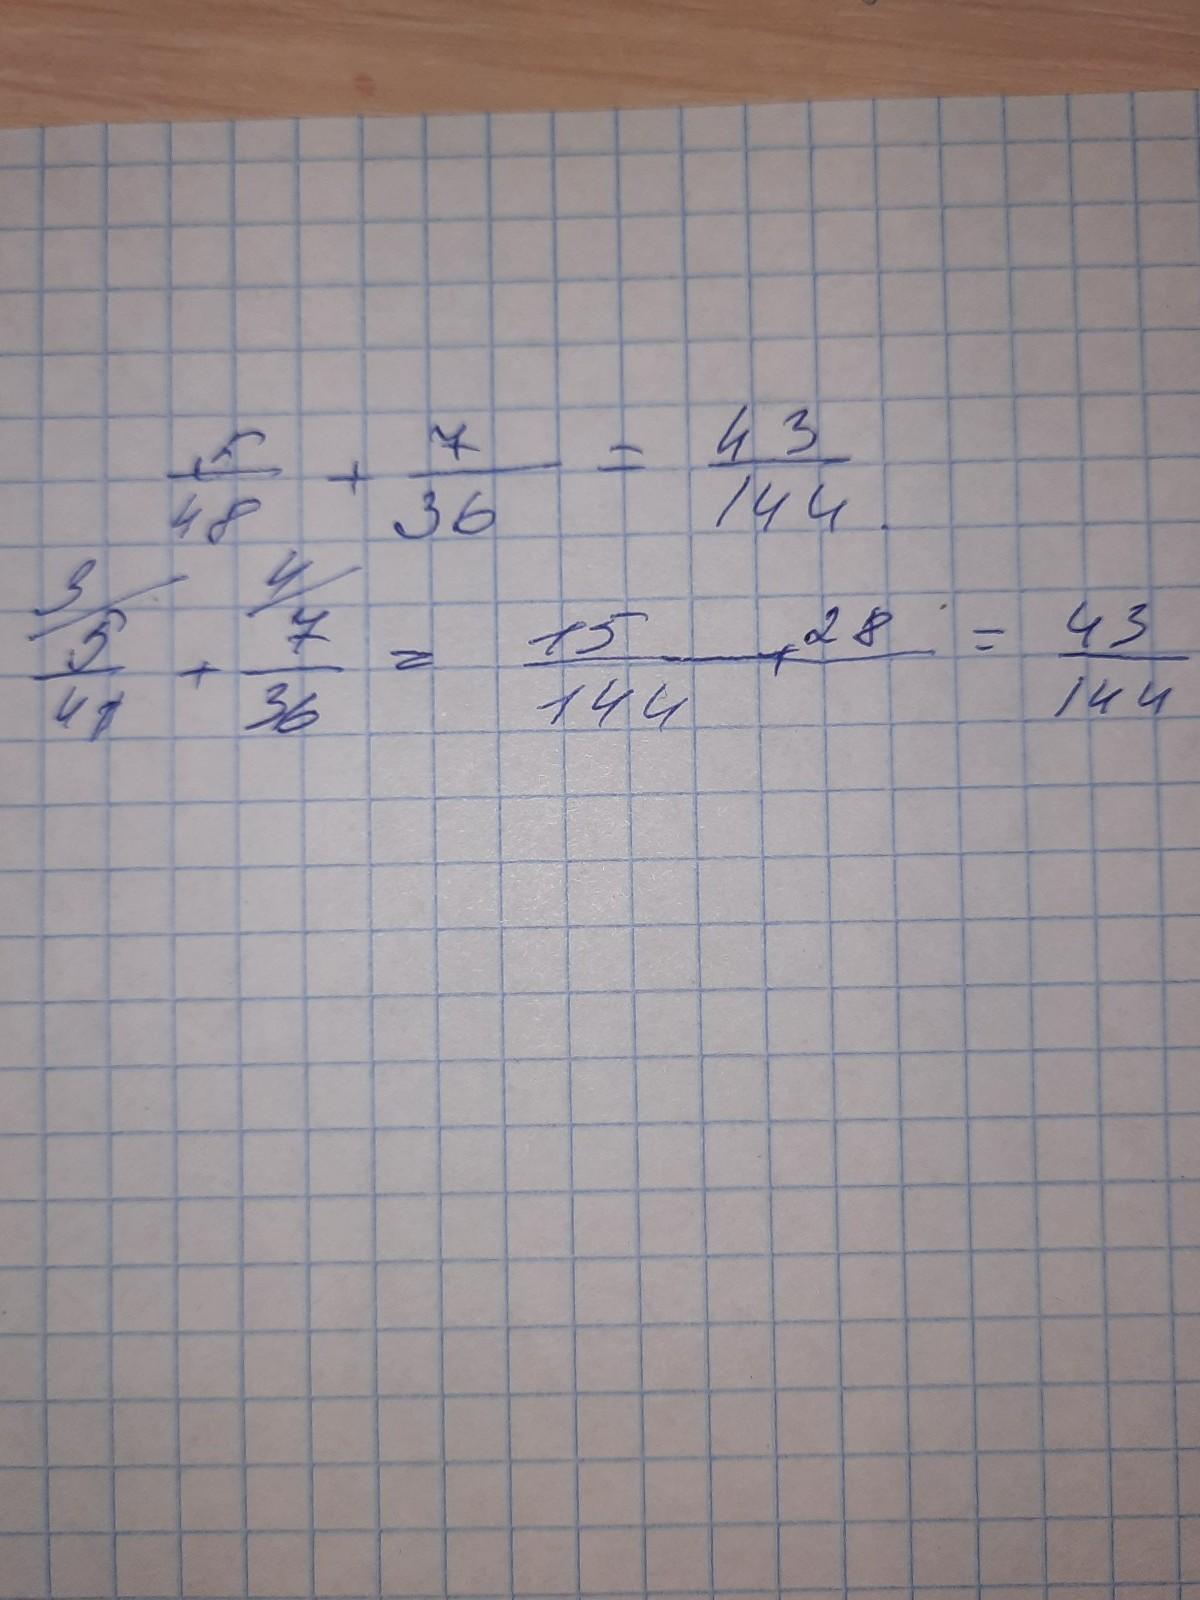 5/48 + 7/36 = 43/144.
3/ 5/48 + 4/ 7/36 = 15+28/144 = 43/144